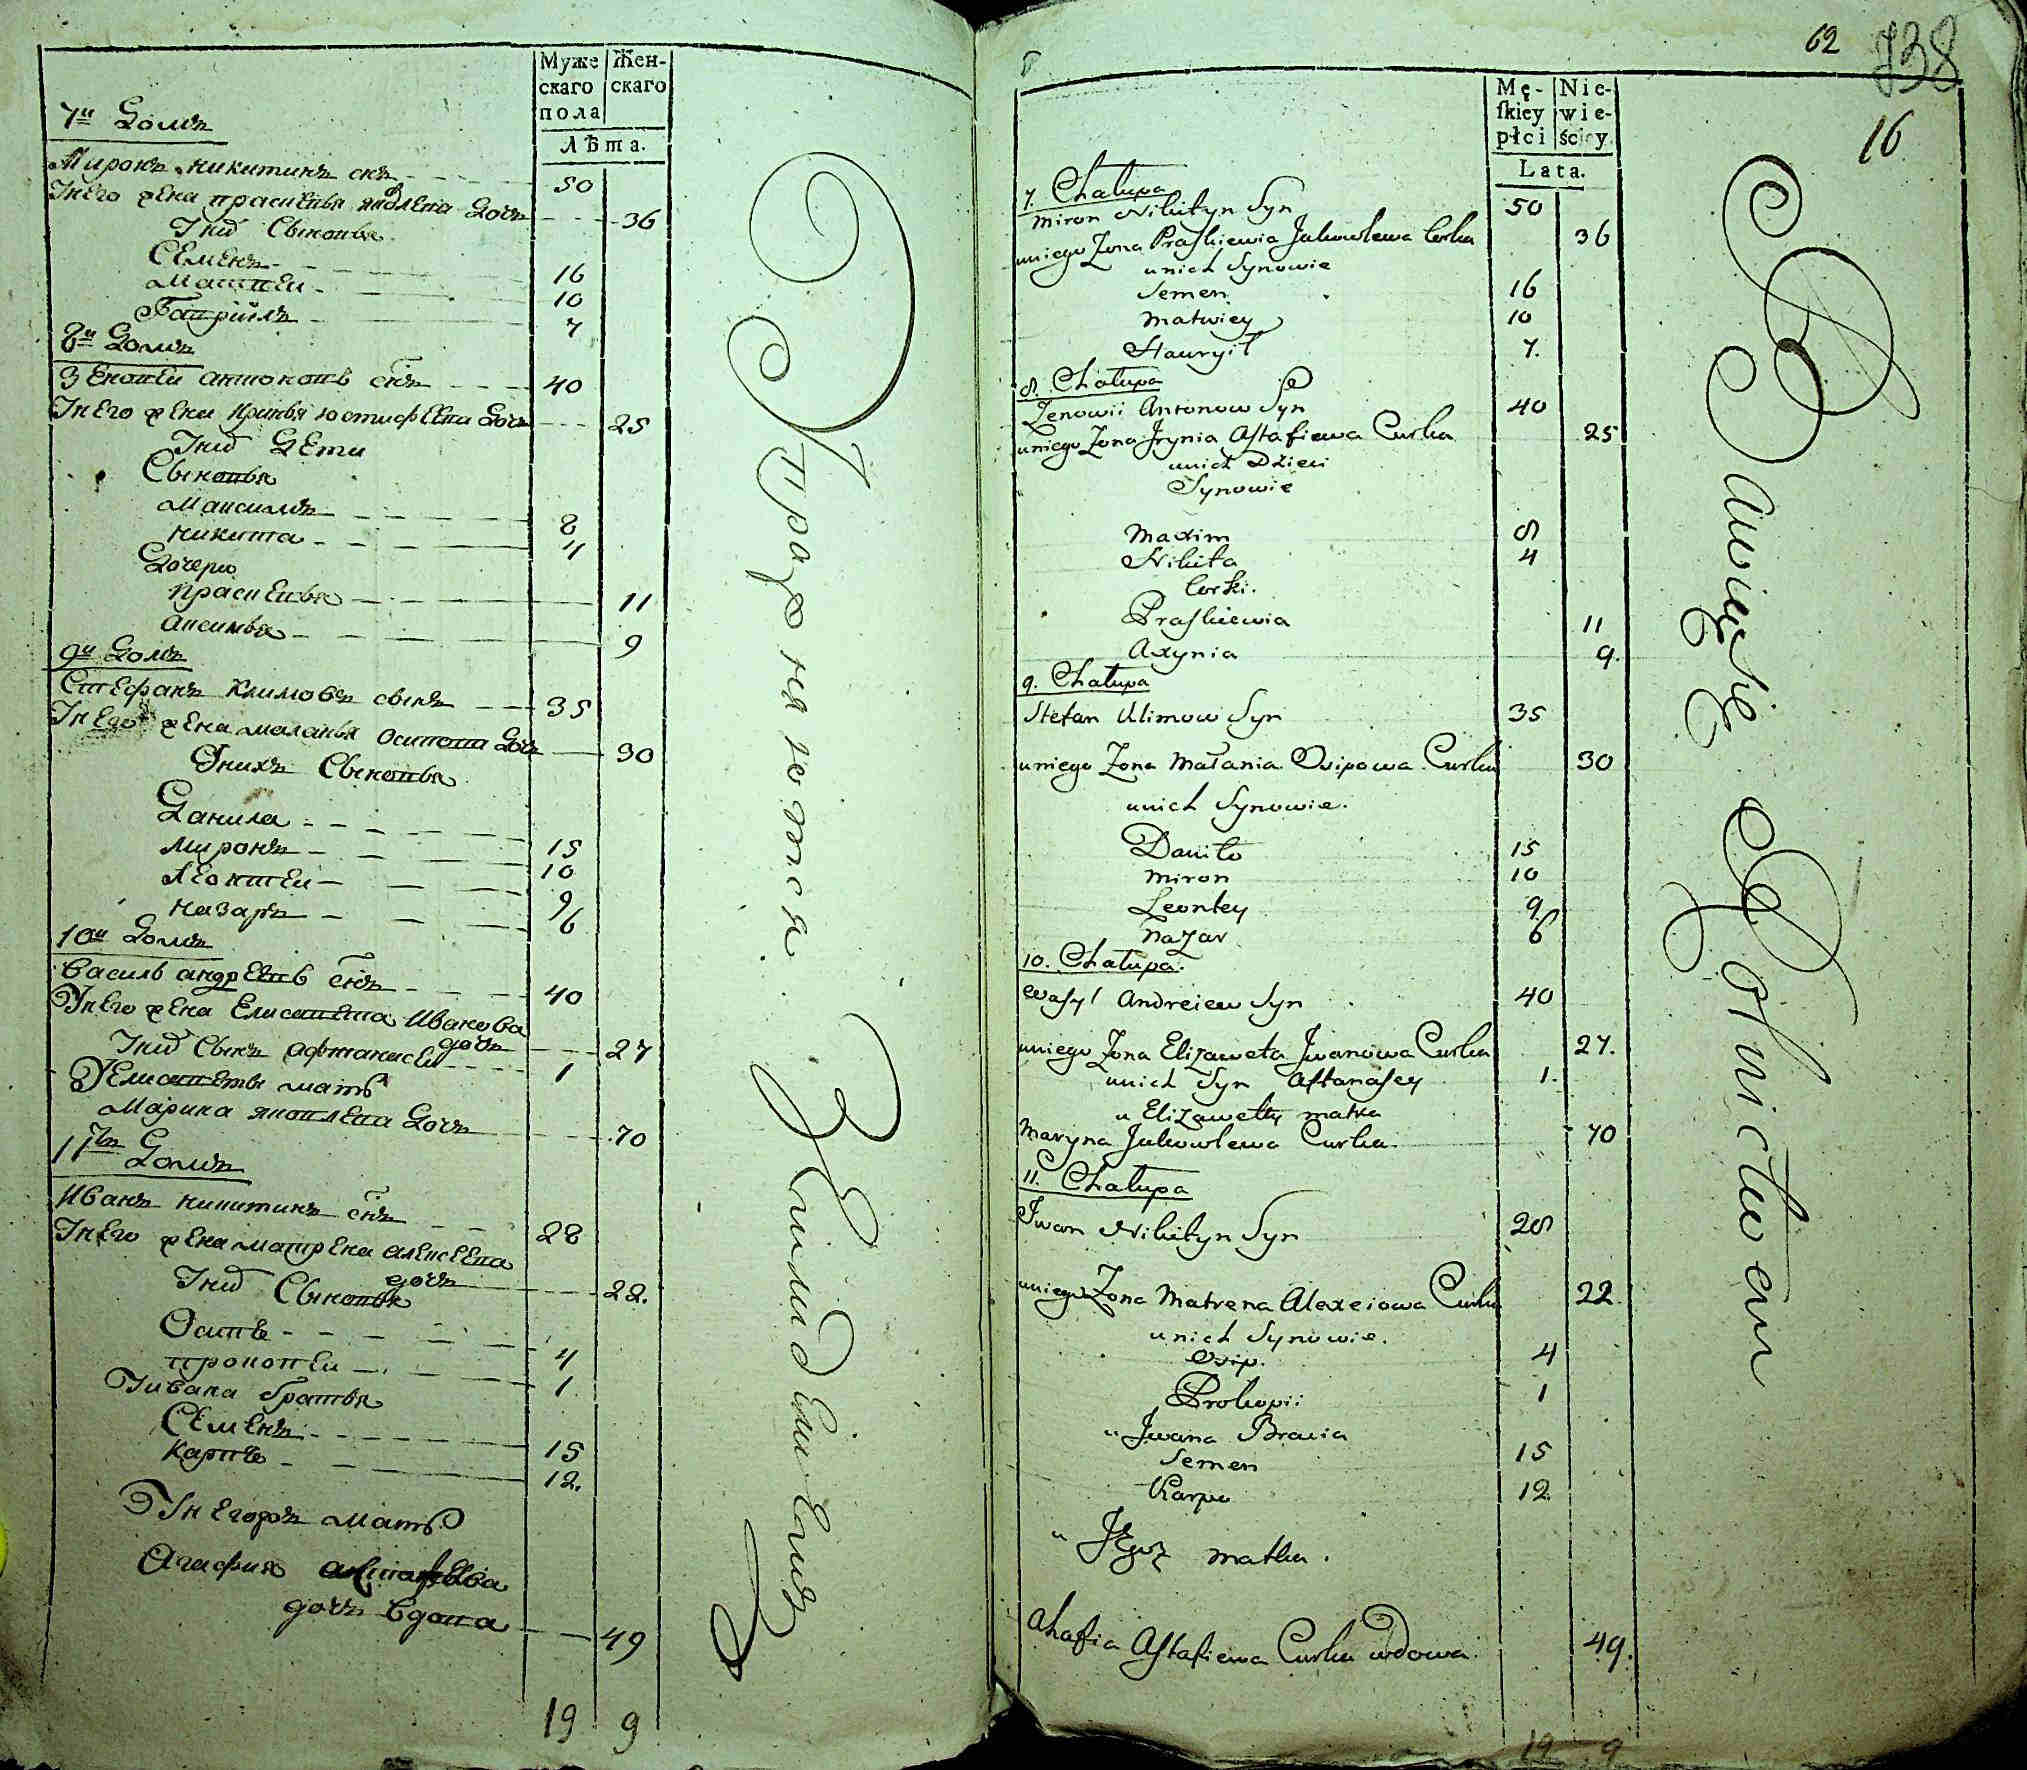 Муже
скаго
пола
Жен-
скаго
Лѣта.
7й Домъ
Миронъ никитинъ снъ 50
Унего жена прасковья яковлева дочь 36
Уних Сыновья
Семенъ 16
Матвеи 10
Гаврійлъ 7
8й Домъ
Зеновеи антоновъ снъ 40
Унего жена иринья юстифеева дочь 25
Уних Дети
Сыновья
Максимъ 8
никита 4
Дочери
прасковья 11
аксинья 9
9й Домъ
Стефанъ климовъ сынъ 35
Унего жена маланья осипова дочь 30
Унихъ Сыновья
Данила
Миронъ 15
Леонтеи 10
назаръ 9
6
10й Домъ
Василь андреевъ снъ 40
Унего жена Елисавета Иванова
дочь 27
Уних Сынъ афтанасеи 1
УЕлисаветы мать
Марина яковлева дочь 70
11й Домъ
Иванъ никитинъ снъ 28
Унего жена матрена алексеева
дочь 22.
Уних Сыновья
Осипъ 4
прокопеи 1
Уивана братья
Семенъ 15
карпъ 12.
Агафия
дочь вдова 49
19 9
Упражняются Хлебопашеством
62
138
16
Mę-
ſkiey
płci
Nie-
wie-
ściey
Lata.
7. Chałupa
Miron Nikityn Syn 50
uniego Zona Praskiewia Jakowlewa Corka 36
unich Synowie
Semen 16
Matwiey 10
Hauryił 7.
8. Chałupa
Zenowii Antonow Syn 40
uniego Zona Jrynia Astafiewa Curka 25
unich Dzieci
Synowie
Maxim 8
Nikita 4
Corki.
Praskiewia 11
Axynia 9.
9. Chałupa
Stefan Klimow Syn 35
uniego Zona Małania Osipowa Curka 30
unich Synowie.
Daniło 15
Miron 10
Leontey 9
Nazar 6
10. Chałupa.
Wasyl Andreiew Syn 40
uniego Zona Elizaweta Jwanowa Curka 27.
unich Syn Aftanasey 1.
u Elizawetty matka
Maryna Jakowlewa Curka 70
11. Chałupa
Jwan Nikityn Syn 28
uniego Zona Matrena Alexeiowa Curka 22
unich Synowie.
Osip. 4
Prokopii 1
u Jwana Bracia
Semen 15
Karpo 12.
matka.
Ahafia Astafiewa Curka wdowa. 49.
19 9
Bawią się Rolnictwem